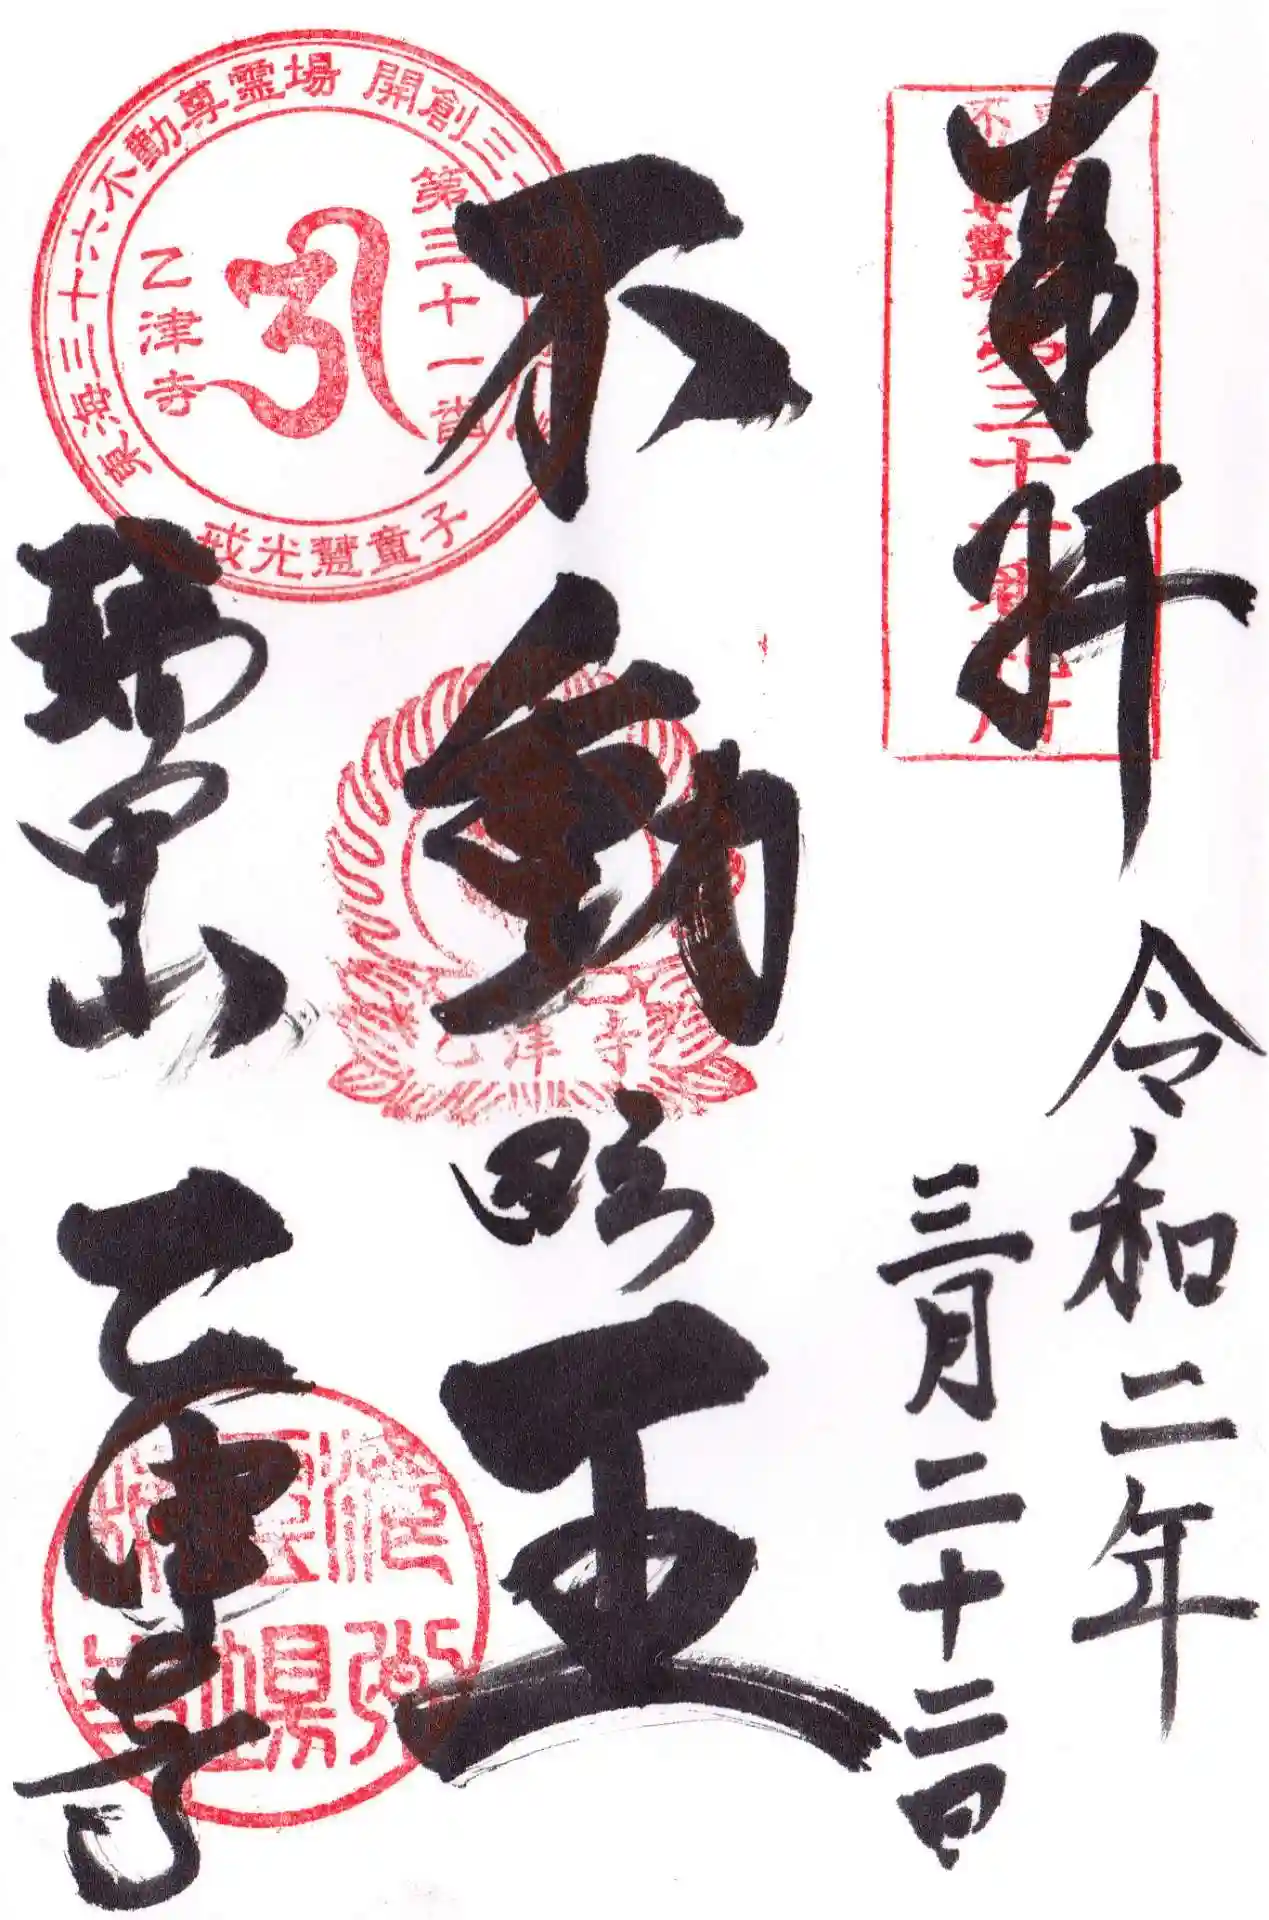 奉拝
令和二年
三月二十二日
不動尊霊場第三十一番札所
不動明王
乙津寺
東海三十六不動尊霊場 開創三
第三十一番
乙津寺
戒光慧童子
瑞甲山
乙津寺